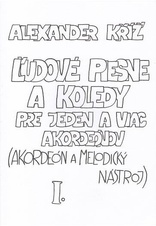 ALEXANDER KRÍŽ
ĽUDOVÉ PIESNE
A KOLEDY
PRE JEDEN A VIAC
AKORDEÓNOV
(AKORDEÓN A MELODICKÝ
NÁSTROJ)
I.